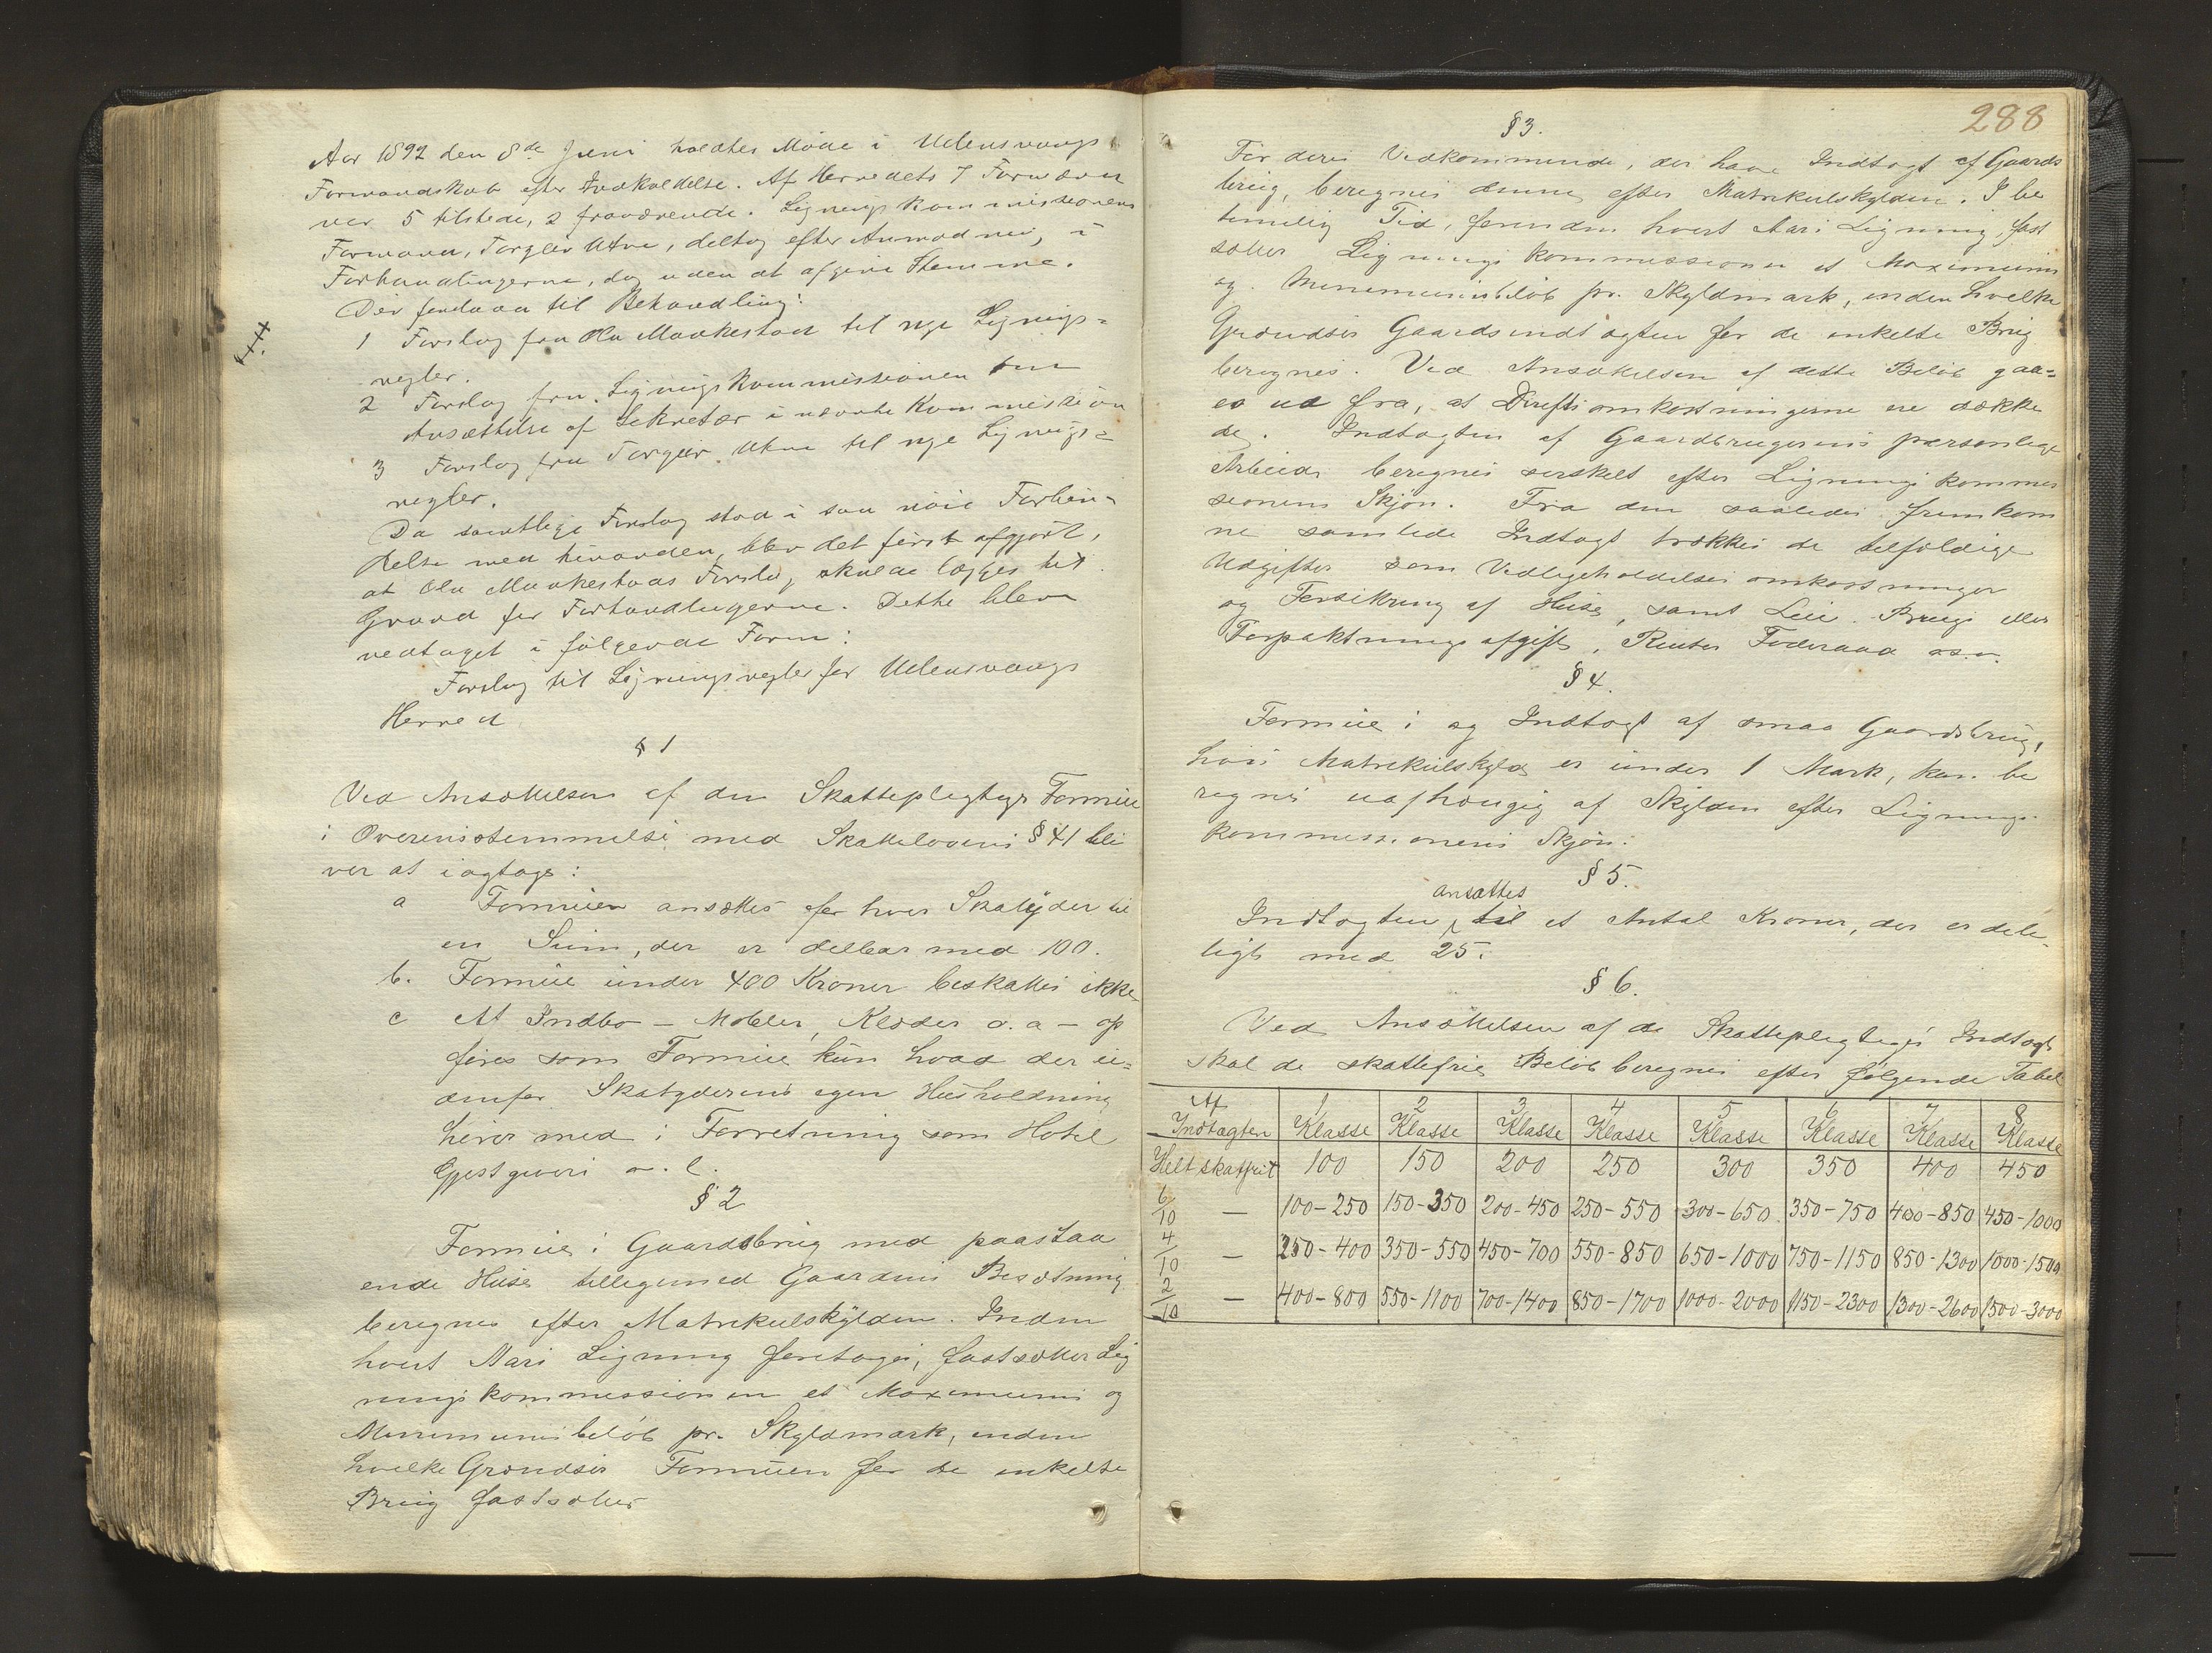 Aar 1892 den 8de Juni holdtes Møde i Ullensvangs
Formandskab efter Indkaldelse. Af Herredets 7 Formænd
var 5 tilstede, 2 fraværende. Ligningskommissionens
Formand, Torgeir Utne, deltog efter Anmodning i
Forhandlingerne, dog uden at afgive Stemme.
Der forelaa til Behandling:
1 Forslag fra Ola Maakestad til nye Lignings=
regler.
2 Forslag fra Ligningskommissionen om
Ansættelse af Sekretær i nævnte Kommission
3 Forslag fra Torgeir Utne til nye Lignings=
regler.
Da samtlige Forslag stod i saa nøie Forbin=
delse med hinanden, blev det først afgjort,
at Ola Maakestads Forslag skulde lægges til
Grund for Forhandlingerne. Dette blev
vedtaget i følgende Form:
Forslag til Ligningsregler for Ullensvangs
Herred
§ 1
Ved Ansættelsen af den Skattepligtiges Formue
i Overensstemmelse med Skattelovens § 41 bli
ver at iagtage:
a Formuen ansættes for hver Skatyder til
en Sum, der er delbar med 100.
b. Formue under 400 Kroner beskattes ikke
c Af Indbo - Møbler, Klæder o. a - op
føres som Formue kun hvad der ud=
enfor Skatyderens egen Husholdning
hører med i Forretning som Hotel
Gjestgiveri o. l.
§ 2
Formue i Gaardsbrug med paastaa
ende Huse tilligemed Gaardens Besætning
beregnes efter Matrikulskylden. Inden
hvert Aars Ligning foretages, fastsætter Lig
ningskommissionen et Maximums og
Minimumsbeløb pr. Skyldmark, inden
hvilke Grændser Formuen for de enkelte
Brug fastsættes
288
§ 3.
For deres Vedkommende, der have Indtægt af Gaards
brug, beregnes denne efter Matrikulskylden. I be
timelig Tid, forinden hvert Aars Ligning, fast
sætter Ligningskommissionen et Maximums
og Minimumsbeløb pr. Skyldmark, inden hvilke
Grændser Gaardsindtægten for de enkelte Brug
beregnes. Ved Ansættelsen af dette Beløb gaa=
es ud fra, at Driftsomkostningerne ere dække
de. Indtægten af Gaardbrugerens personlige
Arbeide beregnes særskilt efter Ligningskommis
sionens Skjøn. Fra den saaledes fremkom
ne samlede Indtægt trækkes de tilfældige
Udgifter som Vedligeholdelsesomkostninger
og Forsikring af Huse, samt Leie. Brugs eller
Forpaktningsafgift, Renter Føderaad o.s.v.
§ 4.
Formue i og Indtægt af smaa Gaardsbrug,
hvis Matrikulskyld er under 1 Mark, kan be
regnes uafhængig af Skylden efter Lignings
kommissionens Skjøn.
§ 5.
ansættes
Indtægten til et Antal Kroner, der er dele
ligt med 25.
§ 6.
Ved Ansættelsen af de Skattepligtiges Indtægt
skal de skattefrie Beløb beregnes efter følgende Tabel
Af Indtægten 1 Klasse 2 Klasse 3 Klasse 4 Klasse 5 Klasse 6 Klasse 7 Klasse 8 Klasse
Helt skatfrit 100 150 200 250 300 350 400 450
6/10 — 100-250 150-350 200-450 250-550 300-650 350-750 400-850 450-1000
4/10 — 250-400 350-550 450-700 550-850 650-1000 750-1150 850-1300 1000-1500
2/10 — 400-800 550-1100 700-1400 850-1700 1000-2000 1150-2300 1300-2600 1500-3000